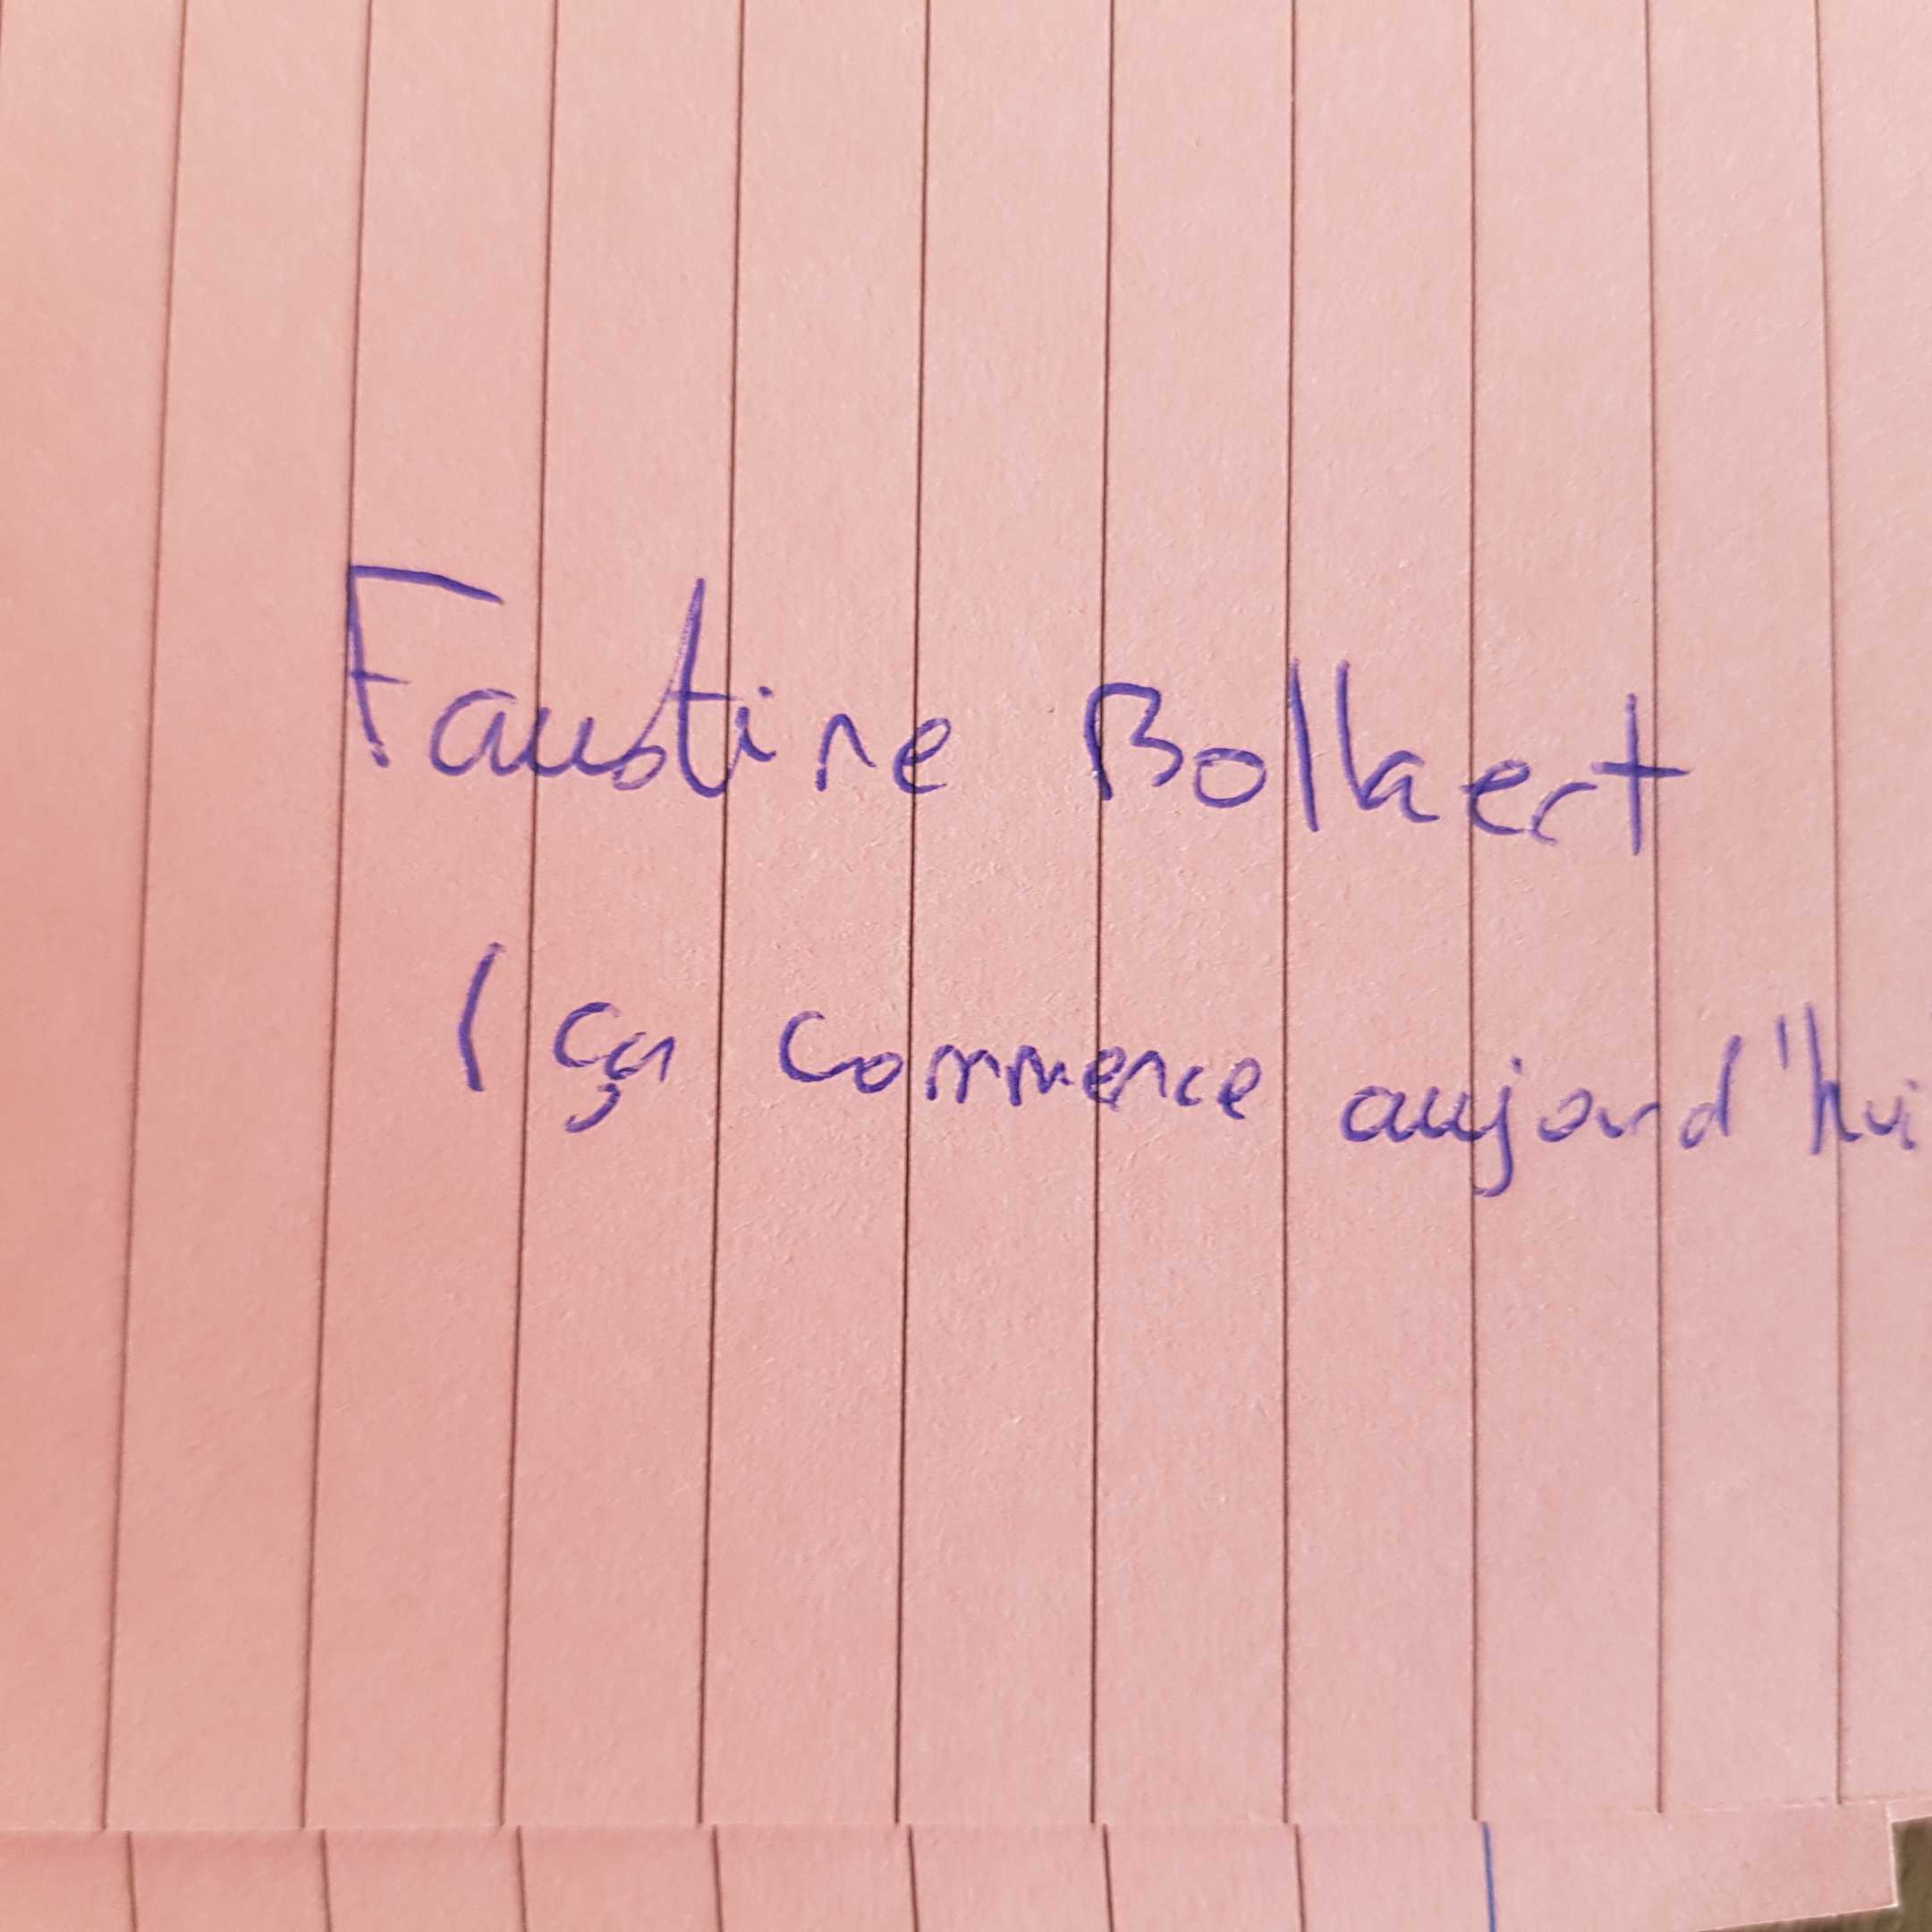 Faustine Bollaert
(ça commence aujourd'hui